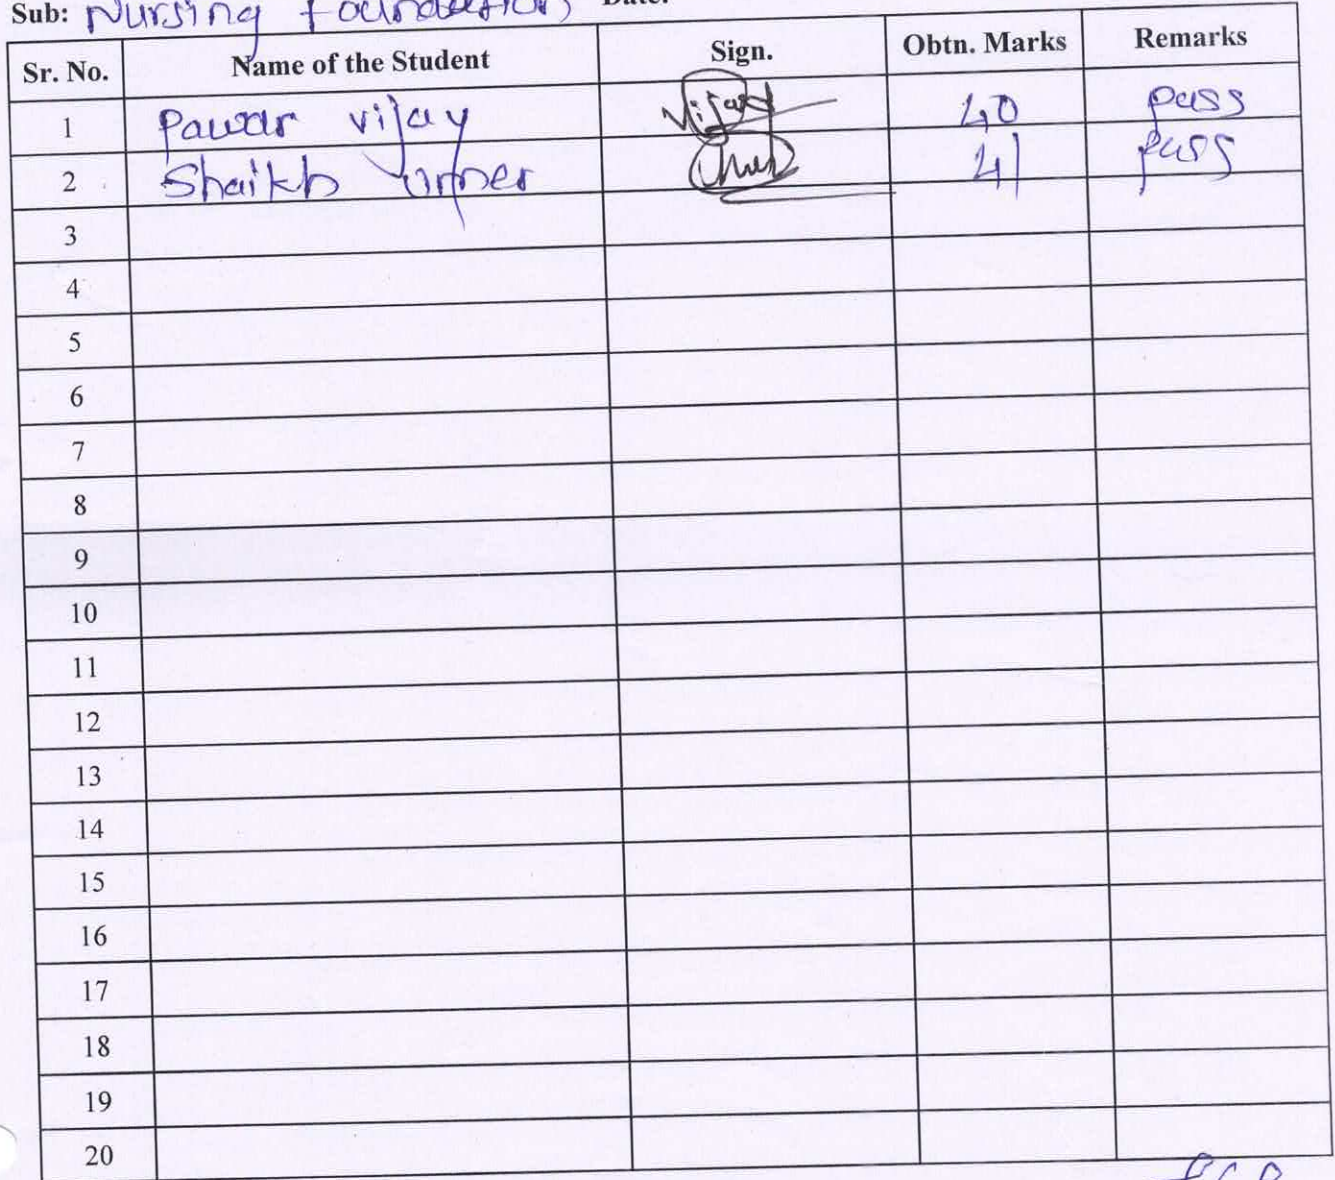 Sub: Nursing Foundation Date:
Sr. No. Name of the Student Sign. Obtn. Marks Remarks
1 Pawar vijay Vijay 40 pass
2 Shaikh umer 41 pass
3
4
5
6
7
8
9
10
11
12
13
14
15
16
17
18
19
20